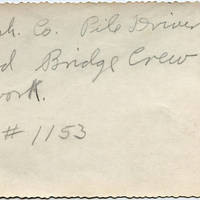 sh. Co. Pile Driver
d Bridge Crew
work.
# 1153